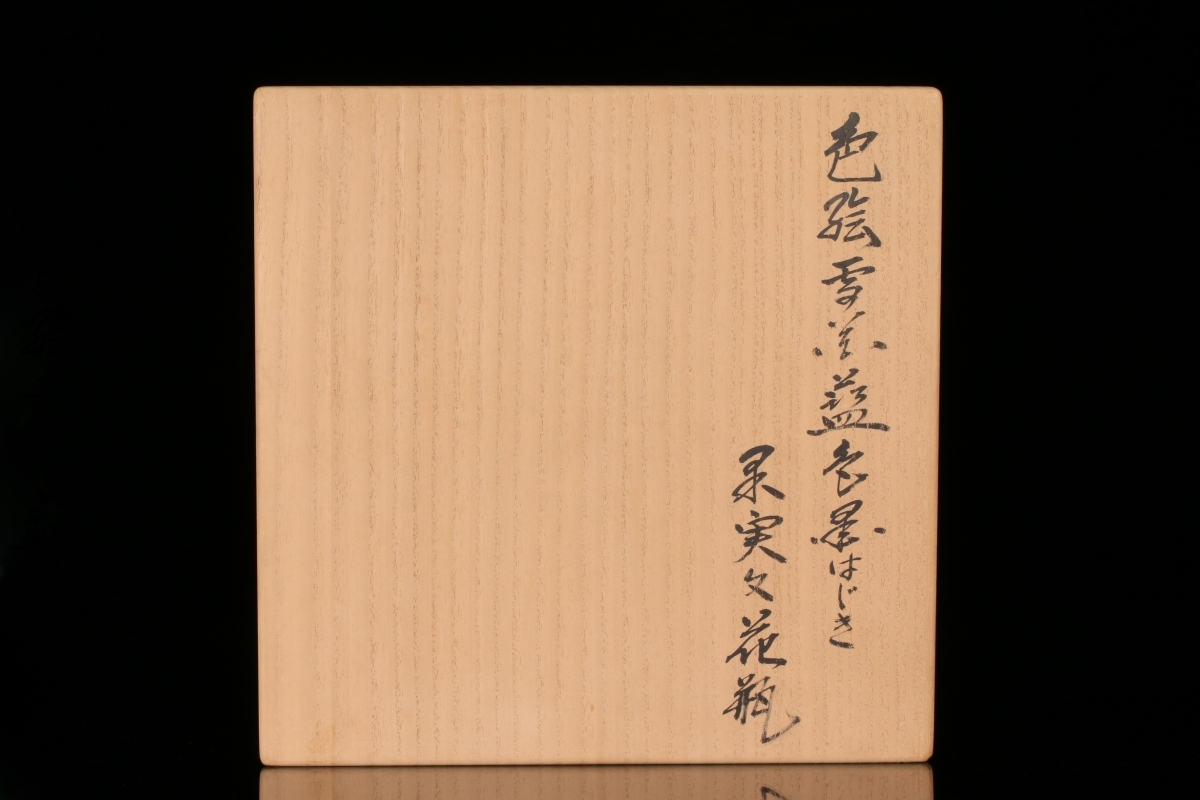 色絵雪花藍色墨はじき
果実文花瓶